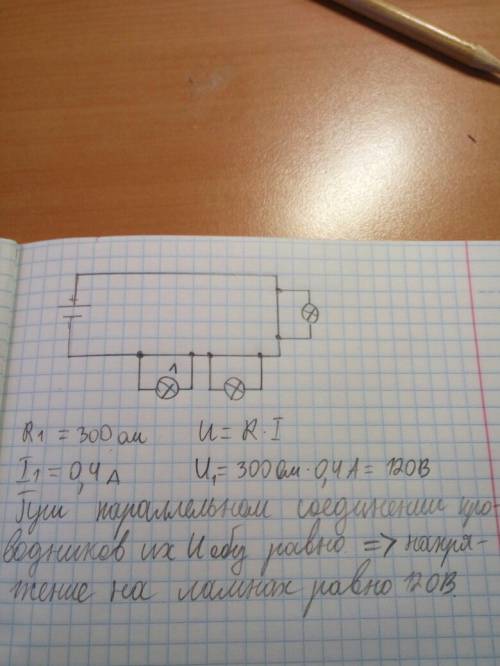 +
1
R1 = 300 Ом U = R · I
I1 = 0,4 А U1 = 300 Ом · 0,4 А = 120В
При параллельном соединении про-
водников их U общ равно => напря-
жение на лампах равно 120В.